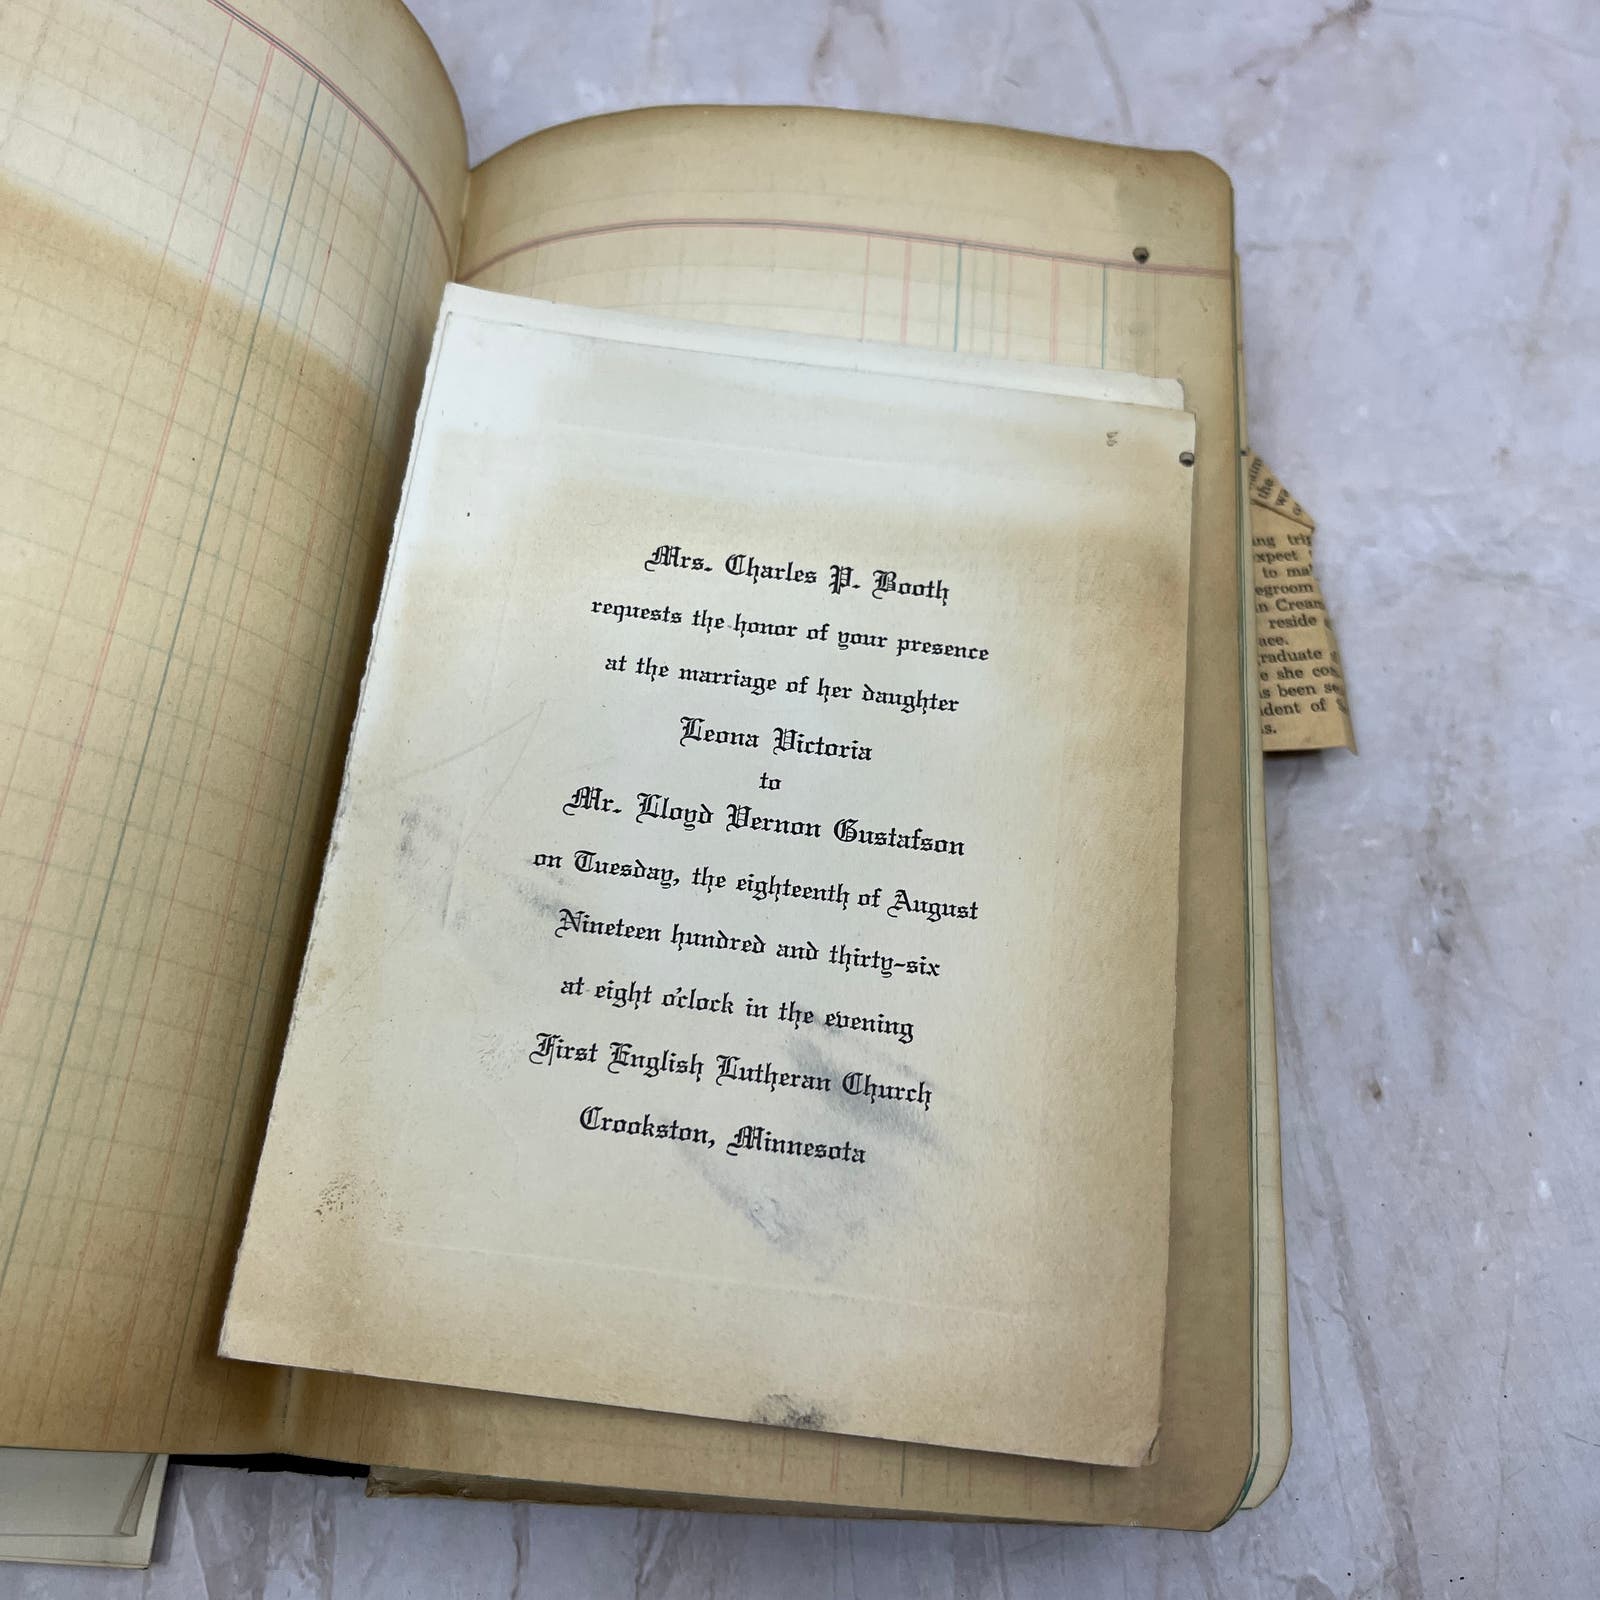 Mrs. Charles P. Booth
requests the honor of your presence
at the marriage of her daughter
Leona Victoria
to
Mr. Lloyd Vernon Gustafson
on Tuesday, the eighteenth of August
Nineteen hundred and thirty-six
at eight o'clock in the evening
First English Lutheran Church
Crookston, Minnesota
the
ing trip
expect
to
egroom
n Cream
reside
ace.
raduate
she
s been
ident of
s.